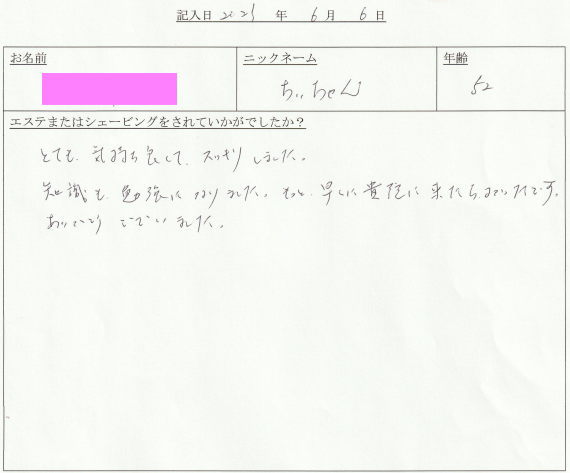 記入日 2023 年 6 月 6 日
お名前 ニックネーム 年齢
ちぃちゃん 52
エステまたはシェービングをされていかがでしたか？
とても、気持ち良くて、スッキリしました。
知識も、勉強になりました。もっと、早くに貴院に来たらよかったです。
ありがとうございました。